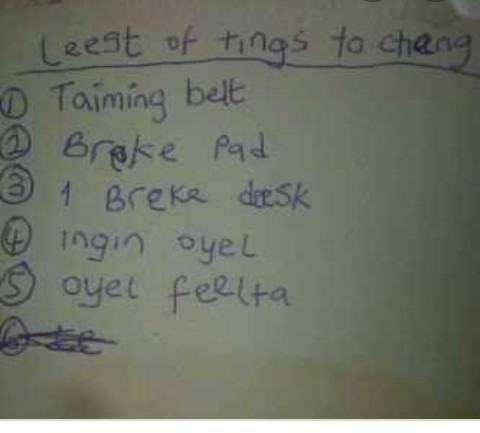 Leest of tings to chang
① Taiming belt
② Breke Pad
③ 1 Breke deesk
④ ingin oyel
⑤ oyel feelta
⑥